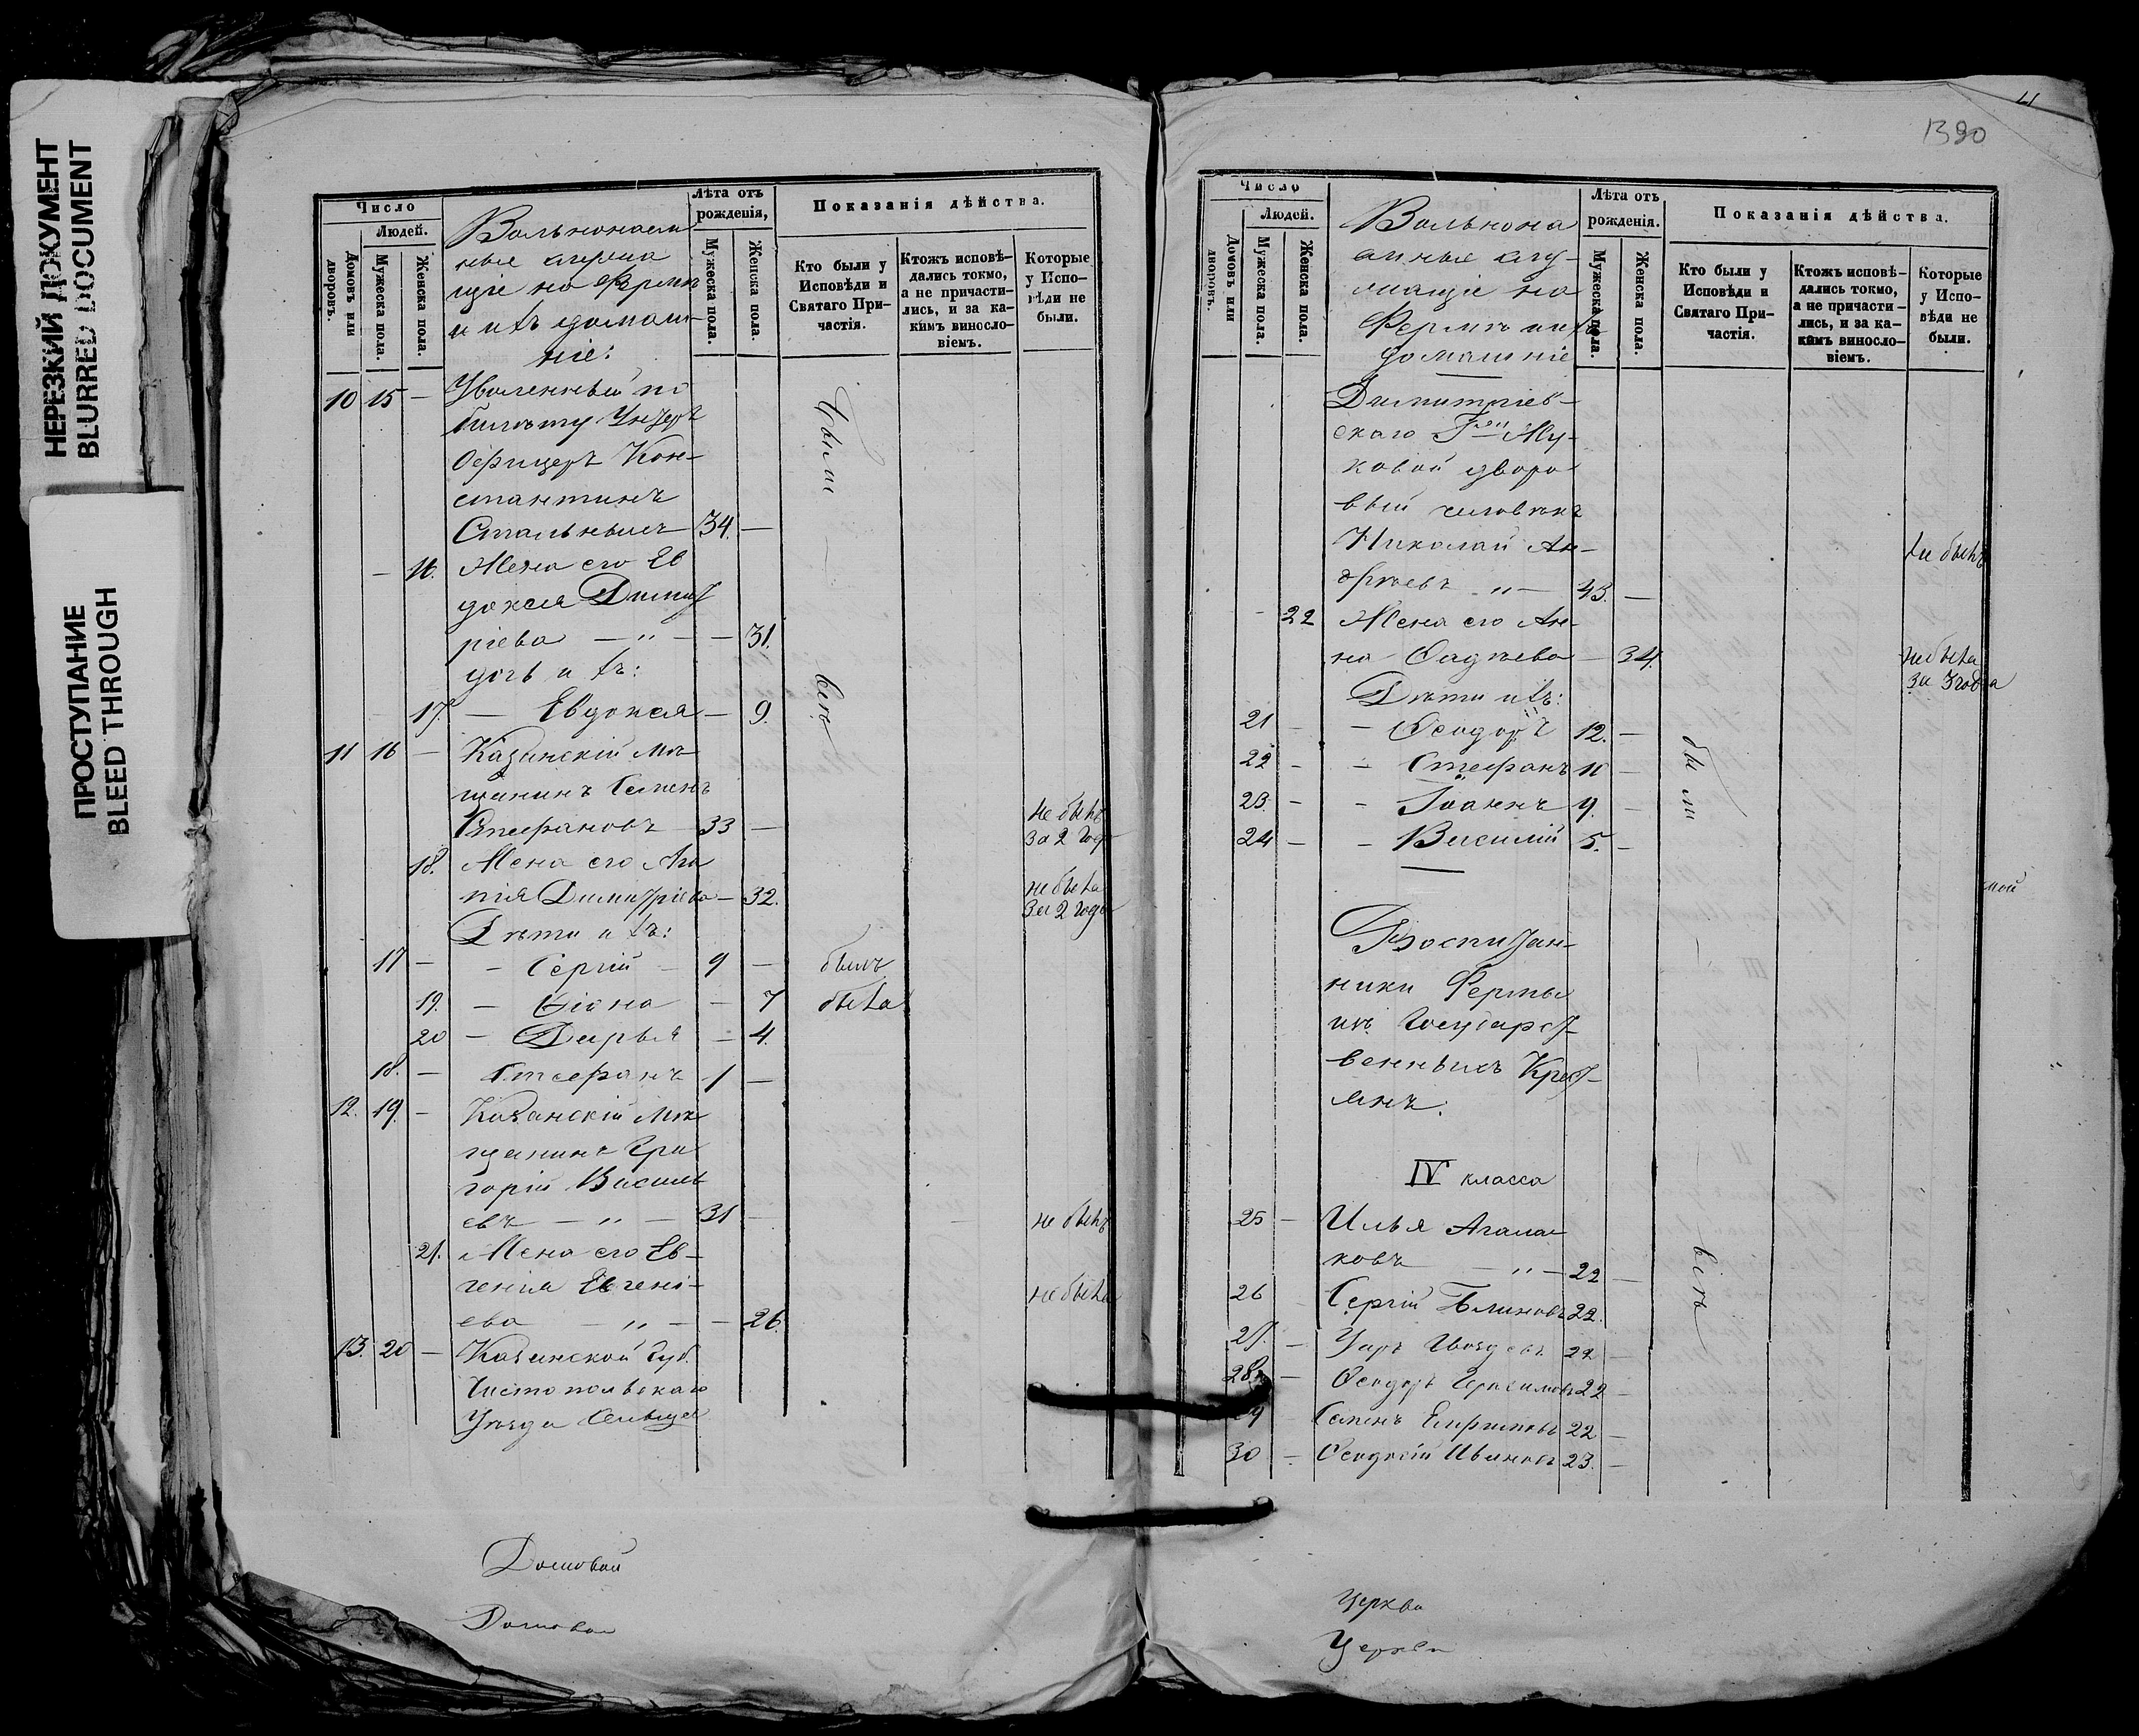 НЕРЕЗКИЙ ДОКУМЕНТ
BLURRED DOCUMENT
ПРОСТУПАНИЕ
BLEED THROUGH
Число
Людей.
Домовъ или дворовъ.
Мужеска пола.
Женска пола.
Вольнонаем
ные служа
щіе на Фермѣ
и ихъ домаш-
ніе:
Лѣта отъ рожденія,
Мужеска пола.
Женска пола.
Показанія дѣйства.
Кто были у Исповѣди и Святаго При-частія.
Ктожъ исповѣ-дались токмо, а не причасти-лись, и за ка-кимъ виносло-віемъ.
Которые у Испо-вѣди не были.
10 15 – Уволенный по
билету Унтеръ
Офицеръ Кон-
стантинъ
34. –
– 16. Жена его Ев
докия Димит
ріева – „ – – 31.
дочь ихъ:
17. – Евдокия – 9.
были
всѣ
11 16 – Казанскій мѣ
щанинъ Семенъ
Стефановъ 33 – не былъ
за 2 года
18. Жена его Ага
пія Димитріева – 32. не была
за 2 года
Дѣти ихъ:
17 – – Сергій – 9 – былъ
19. – – 7 была
20 – Дарья – 4.
18. – Стефанъ – 1 –
12. 19. – Казанскій мѣ
щанинъ Гри
горій Василь
евъ – „ – 31 – не былъ
21. Жена его Ев-
генія Евгені-
ева – „ – – 26. не была
13. 20 – Казанской Губ.
Чистопольскаго
Уѣзда
Домовой
Домовой
1390
Число
Людей.
Домовъ или дворовъ.
Мужеска пола.
Женска пола.
Вольнона
емные слу-
жащіе на
Фермѣ и ихъ
домашніе
Лѣта отъ рожденія.
Мужеска пола.
Женска пола.
Показанія дѣйства.
Кто были у Исповѣди и Святаго При-частія.
Ктожъ исповѣ-дались токмо, а не причасти-лись, и за ка-кимъ виносло-віемъ.
Которые у Испо-вѣди не были.
Димитріев-
скаго Г-жи Му-
ховой дворо
вый человѣкъ
Николай Ан-
дреевъ „ – 43. – не былъ
– 22 Жена его Ан-
на Фадѣева – 34. не была
за 3 года
Дѣти ихъ:
21 – – Ѳеодоръ 12. –
22 – – Стефанъ 11 –
23. – – Іоаннъ 9. –
24 – – Василій 5. –
были
Воспитан-
ники Фермы
изъ Государст-
венныхъ Крест-
янъ.
IV класса
25 – Илья Агала
ковъ – „ – 22 –
26 Сергій Блиновъ 22.
27. – Уаръ Гвоздевъ 22 –
28. – Ѳеодоръ Герасимовъ 22 –
29 Семенъ Ефремовъ 22 –
30 – Ѳеодосій Ивановъ 23. –
всѣ
Церкви
Церкви